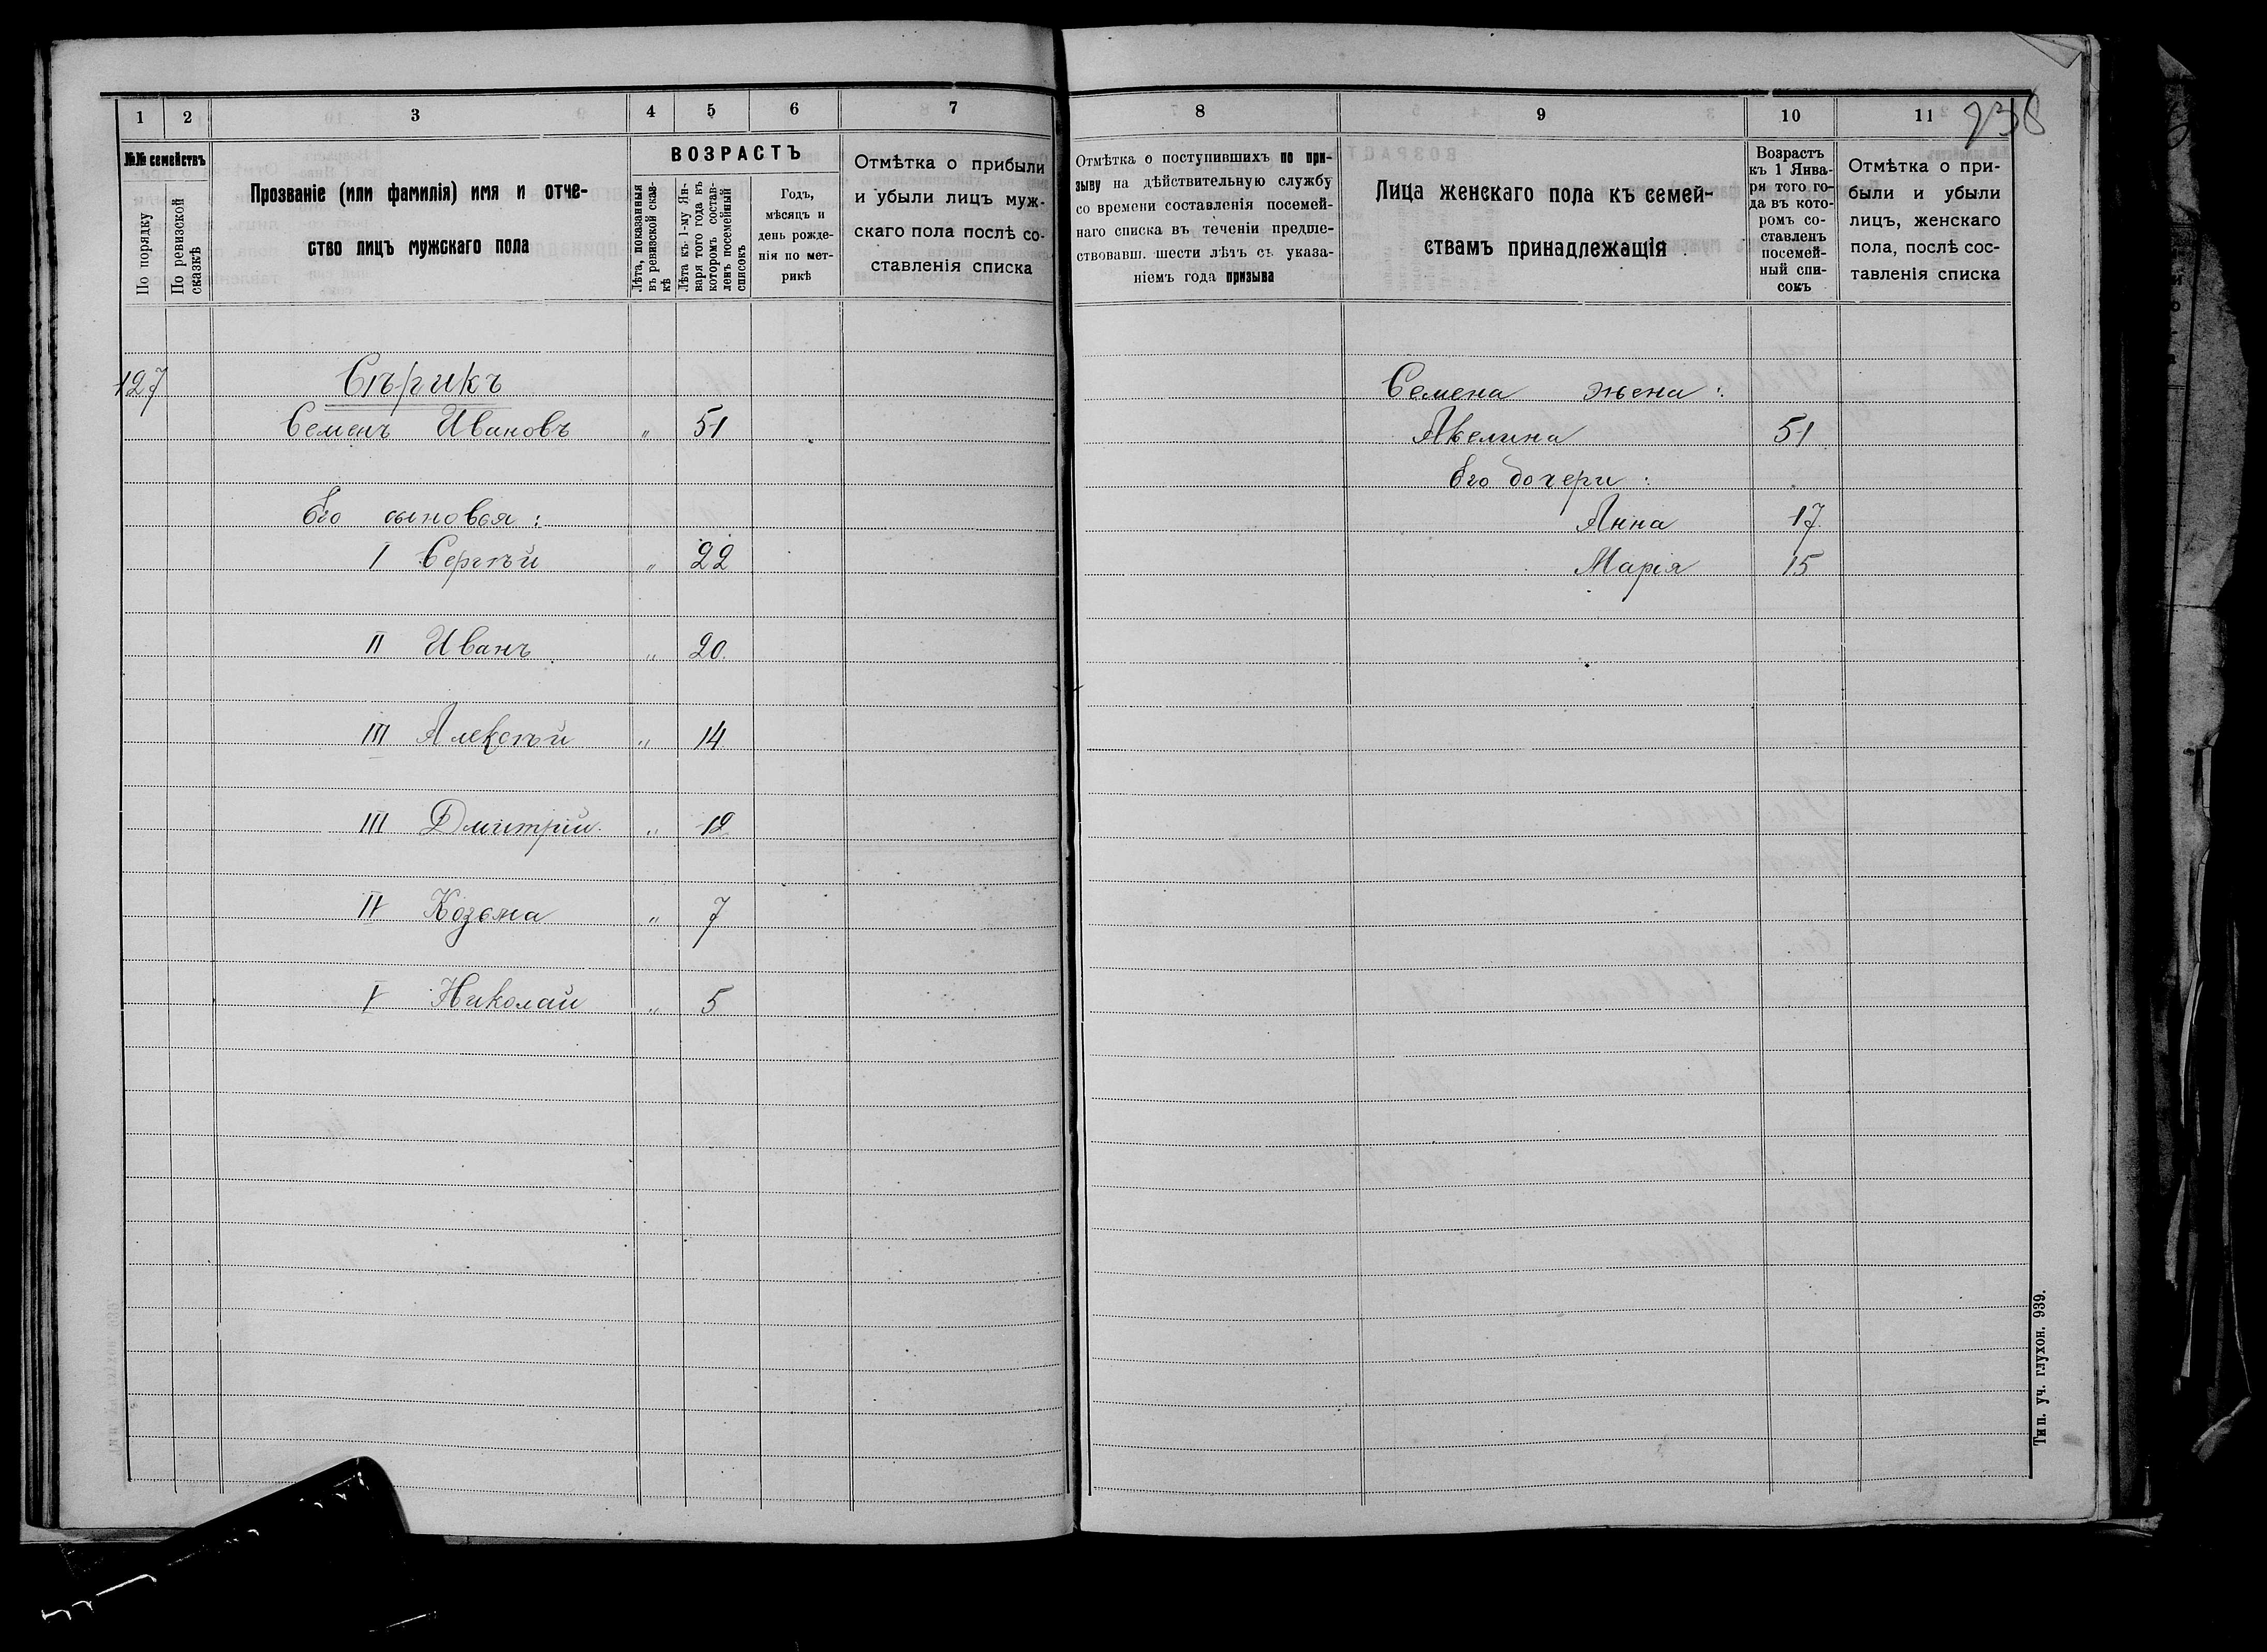 1 2 3 4 5 6 7
№№ семействъ
По порядку
По ревизской сказкѣ
Прозваніе (или фамилія) имя и отчество лицъ мужскаго пола
ВОЗРАСТЪ
Лѣта, показанныя въ ревизской сказкѣ
Лѣта къ 1-му Января того года въ которомъ составленъ посемейный списокъ
Годъ, мѣсяцъ и день рожденія по метрикѣ
Отмѣтка о прибыли и убыли лицъ мужскаго пола послѣ составленія списка
127 Сѣрикъ
Семенъ Ивановъ " 51
Его сыновья:
I Сергѣй " 22
II Иванъ " 20
III Алексѣй " 14
III Дмитрій " 12
IV Козьма " 7
V Николай " 5
8 9 10 11
238
Отмѣтка о поступившихъ по призыву на дѣйствительную службу со времени составленія посемейнаго списка въ теченіи предшествовавш. шести лѣтъ съ указаніемъ года призыва
Лица женскаго пола къ семействамъ принадлежащія
Возрастъ къ 1 Января того года въ которомъ составленъ посемейный списокъ
Отмѣтка о прибыли и убыли лицъ, женскаго пола, послѣ составленія списка
Семена жена:
Авелина 51
Его дочери:
Анна 17
Марія 15
Тип. уч. глухон. 939.